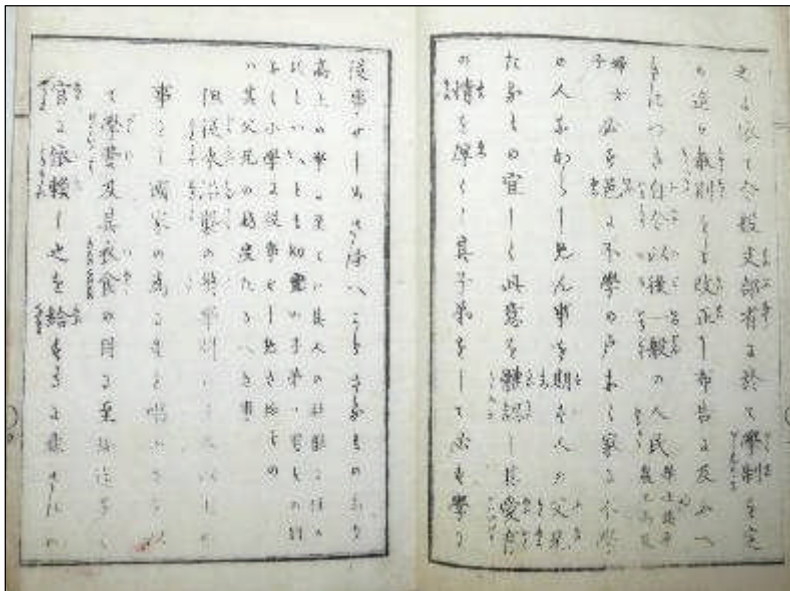 之に依て今般文部省に於て學制を定
め追々教則をも改正し布告に及ふへ
きにつき自今以後一般の人民華士族農工商及
婦女子必す邑に不學の戸なく家に不學
の人なからしめん事を期す人の父兄
たるもの宜しく此意を體認し其愛育
の情を厚くし其子弟をして必す學に
從事せしめさるへからさるものなり
高上の學に至ては其人の材能に任か
すといへとも幼童の子弟は男女の別
なく小學に從事せしめさるもの
は其父兄の越度たるへき事
但從來沿襲の弊學問は士人以上の
事とし國家の爲にすと唱ふるを以
て學費及其衣食の用に至る迄多く
官に依賴し之を給するに非されは